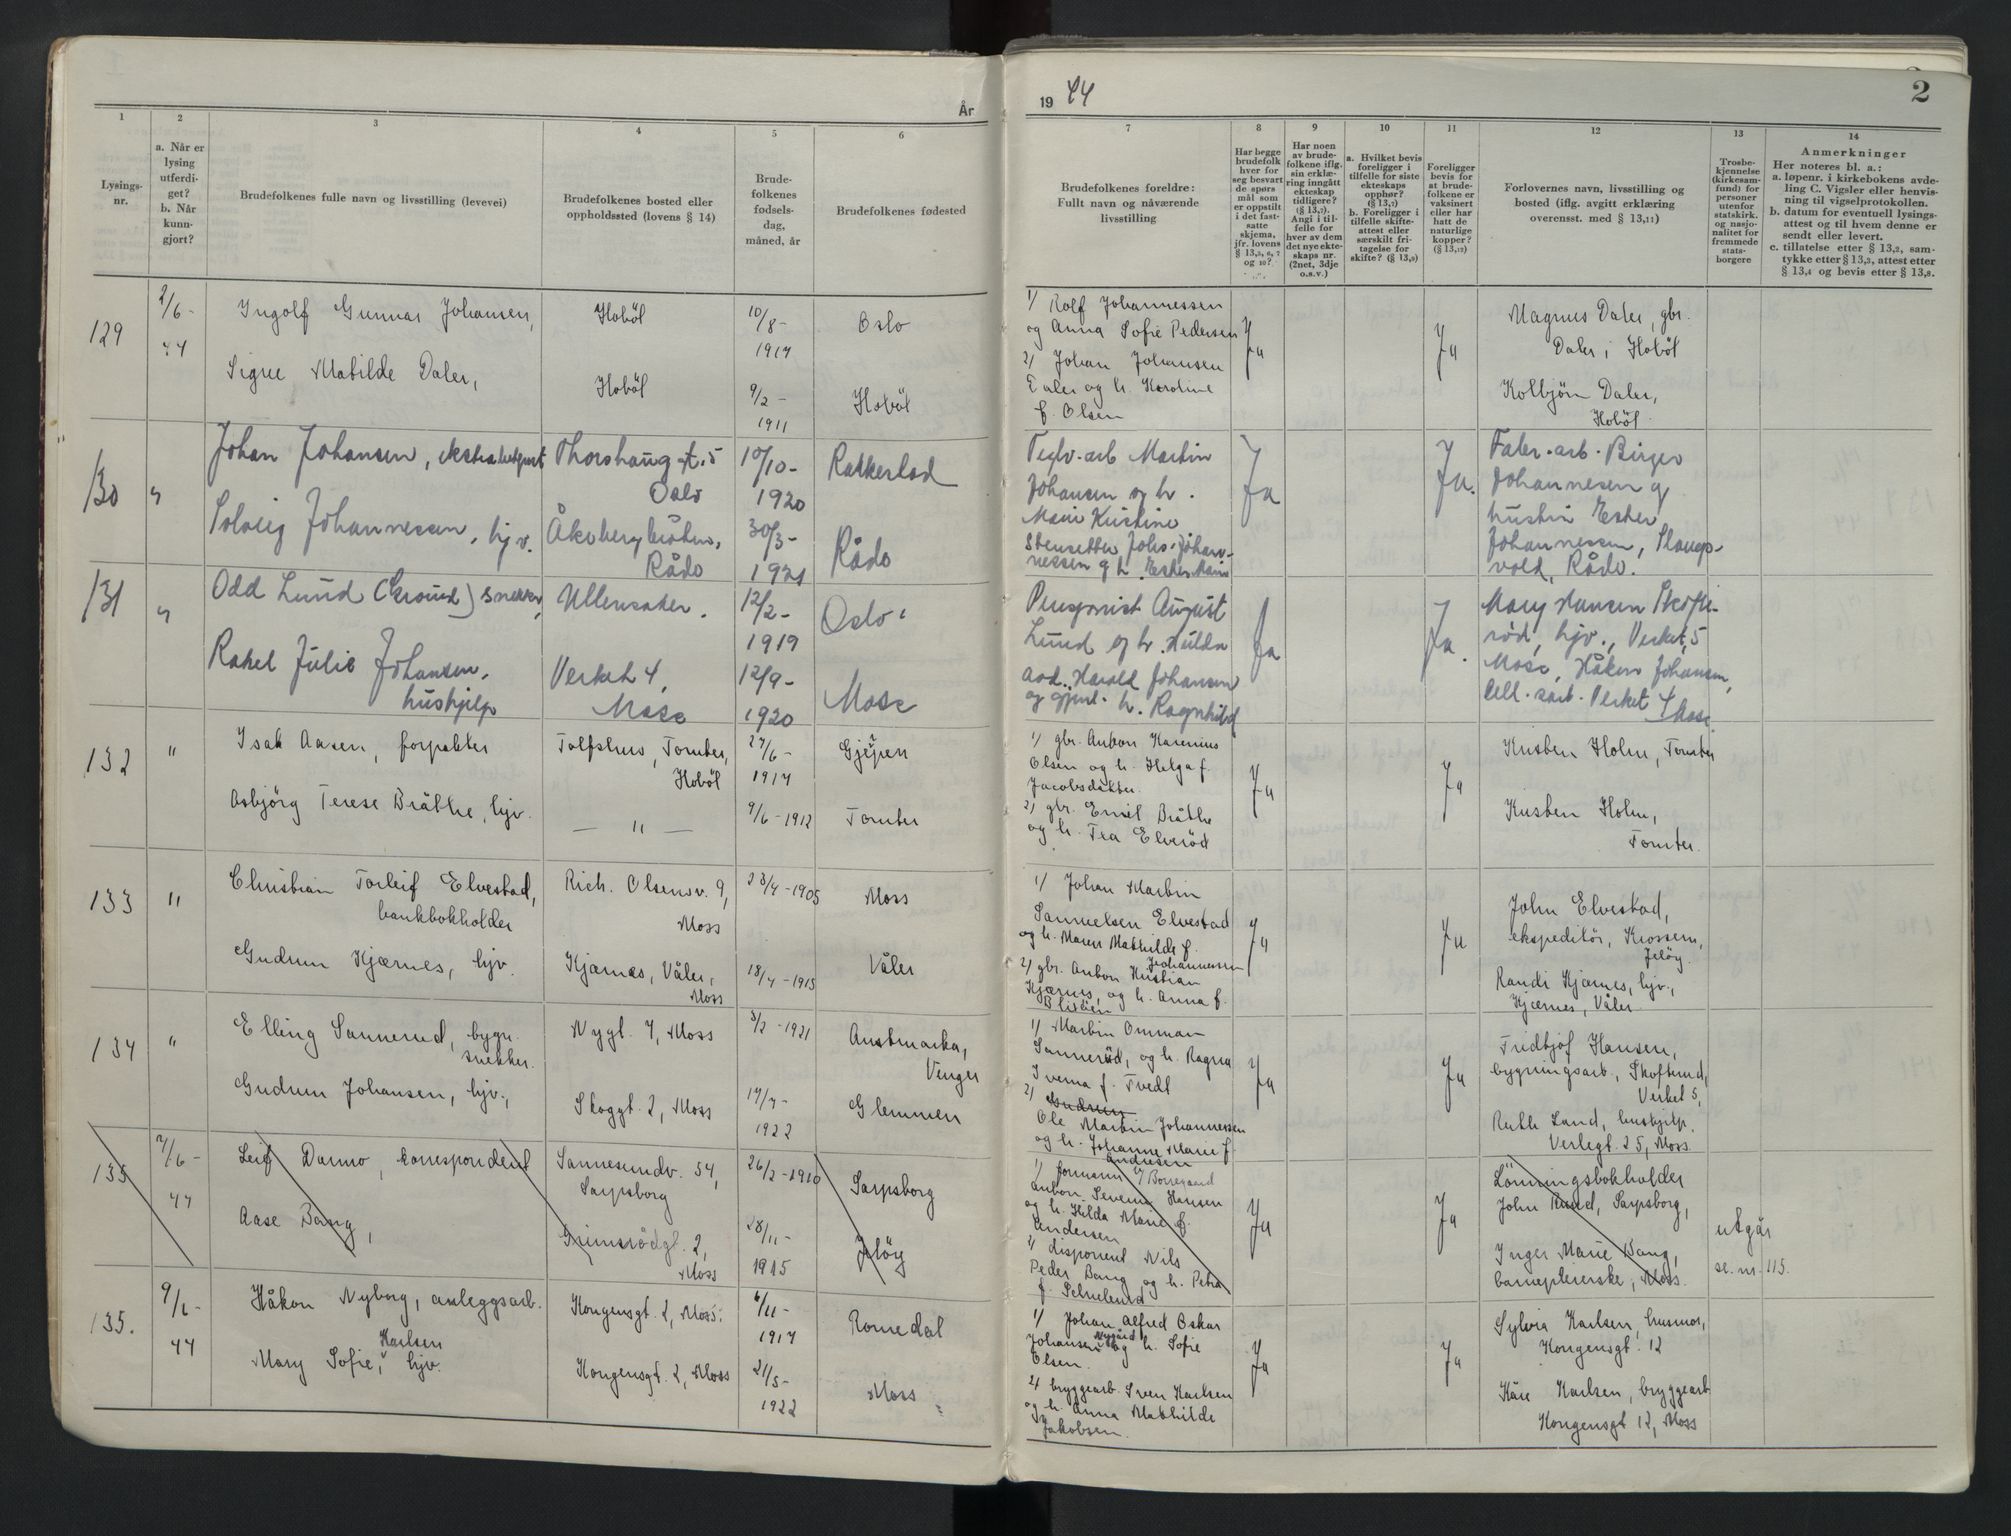 År
19 44
2
1
2
3
4
5
6
7
8
9
10
11
12
13
14
Lysings-
nr.
a. Når er
lysing
utferdi-
get?
b. Når
kunn-
gjort?
Brudefolkenes fulle navn og livsstilling (levevei)
Brudefolkenes bosted eller
oppholdssted (lovens § 14)
Brude-
folkenes
fødsels-
dag,
måned, år
Brudefolkenes fødested
Brudefolkenes foreldre:
Fullt navn og nåværende
livsstilling
Har begge
brudefolk
hver for
seg besvart
de spørs
mål som
er oppstilt
i det fast-
satte
skjema,
jfr. lovens
§ 13,5, 6, 7
og 10?
Har noen
av brude-
folkene iflg.
sin erklæ-
ring inngått
ekteskap
tidligere?
(§ 13,7).
Angi i til-
felle for
hver av dem
det nye ekte-
skaps nr.
(2net, 3dje
o.s.v.)
a. Hvilket bevis
foreligger i
tilfelle for siste
ekteskaps
opphør?
(§ 13,7)
b. Foreligger i
tilfelle skifte-
attest eller
særskilt fri-
tagelse for
skifte? (§ 13,9)
Foreligger
bevis for
at brude-
folkene er
vaksinert
eller har
hatt de
naturlige
kopper?
(§ 13,12)
Forlovernes navn, livsstilling og
bosted (iflg. avgitt erklæring
overensst. med § 13,11)
Trosbe-
kjennelse
(kirkesam-
fund) for
personer
utenfor
statskirk.
og nasjo-
nalitet for
fremmede
stats-
borgere
Anmerkninger
Her noteres bl. a.:
a. løpenr. i kirkebokens avde-
ling C. Vigsler eller henvis-
ning til vigselprotokollen.
b. datum for eventuell lysings-
attest og til hvem denne er
sendt eller levert.
c. tillatelse etter § 13,2, sam-
tykke etter § 13,3, attest etter
§ 13,4 og bevis etter § 13,8.
129
2/6-
44
Ingolf Gunnar Johansen,
Signe Matilde Daler,
Hobøl
Hobøl
10/8-
1917
9/2-
1911
Oslo
Hobøl
1) Rolf Johannessen
og Anna Sofie Pedersen
2) Johan Johansen
Daler og h. Karoline
f. Olsen
Ja
Ja
Magnus Daler, gbr.
Daler i Hobøl
Kolbjørn Daler,
Hobøl
130
"
Johan Johansen,
Solveig Johannessen, hjv.
Thorshaug gt. 5
Oslo
Råde
10/10-
1920
30/3-
1921
Rakkestad
Råde
Teglv. arb Martin
Johansen og h.
Marie Kristine
og h. Ester Marie
Ja
Ja.
Birger
Johannesen og
hustru Ester
Johannessen,
Råde.
131
"
Odd Lund snekker,
Rakel Julie Johansen,
hushjelp
Ullensaker.
Verket 4,
Moss
12/2-
1919
12/9-
1920
Oslo
Moss
Pensjonist August
Lund og h. Hulda
Harald Johansen
og h. Ragnhild
Ja
Ja.
Mary Hansen Skofte-
rød, hjv., Verket 5
Moss, Håkon Johansen,
Cell. arb. Verket 4 Moss
132
"
Isak Aasen, forpakter
Asbjørg Terese Bråthe, hjv.
Tolfshus, Tomter,
Hobøl
— " —
27/6-
1917
9/6-1912
Gjerpen
Tomter
1) gbr. Anton Karenius
Olsen og h. Helga f.
Jacobsdatter.
2) gbr. Emil Bråthe
og h. Tea Elverød
Ja
Ja
Kristen Holm, Tomter
Kristen Holm,
Tomter.
133
"
Christian Torleif Elvestad,
bankbokholder
Gudrun Kjærnes, hjv.
Rich. Olsensv. 9,
Moss
Kjærnes, Våler,
Moss
23/4-1905
18/4-1915
Moss
Våler
1) Johan Martin
Samuelsen Elvestad
og h. Maren Mathilde f.
Johannessen
2) gbr. Anton Kristian
Kjærnes, og h. Anna f.
Ja
Ja
John Elvestad,
ekspeditør, Krossern,
Jeløy.
Randi Kjærnes, hjv.,
Kjærnes, Våler
134
"
Elling Sannerud, bygn.
snekker.
Gudrun Johansen, hjv.,
Nygt. 7, Moss
Skoggt. 2, Moss
3/2-1921
17/7-
1922
Austmarka,
Vinger
Glemmen
1) Martin Omman
Sannerud, og h. Ragna
Iverna f. Tvedt
2) Gudrun
Ole Martin Johannessen
og h. Johanne Marie f.
Andresen
Ja
Ja
Fridtjof Hansen,
bygningsarb., Skofterud,
Verket 5,
Ruth Sand, hushjelp,
Verlegt. 25, Moss
135
7/6-
44
Leif Danmo, korrespondent
Aase Bang,
Sannesundv. 54,
Sarpsborg
Grimsrødgt. 2,
Moss
26/2-1910
28/11-
1915
Sarpsborg
Jeløy
1) formann v/ Borregaard
Anton Severin Hansen
og h. Hilda Marie f.
Andersen
2) disponent Nils
Peder Bang og h. Petra
Ja
Ja
Lønningsbokholder
John Ruud, Sarpsborg,
Inger Marie Bang,
barnepleierske, Moss.
utgår
se nr. 115.
135.
9/6-
44
Håkon Nyborg, anleggsarb.
Karlsen
Mary Sofie, hjv.
Kongensgt. 2, Moss
Kongensgt. 2, Moss
6/11-
1917
21/5-
1922
Romedal
Moss
1) Johan Alfred Oskar
Johansen Nygård og h. Sofie
Olsen.
2) bryggearb. Sven Karlsen
og h. Anna Mathilde
Jakobsen.
Ja
Ja
Sylvia Karlsen, husmor,
Kongensgt. 12
Kåre Karlsen, bryggearb
Kongensgt 12, Moss